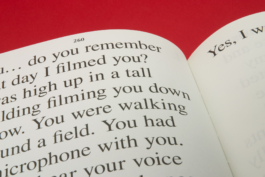 260
... do you remember
t day I filmed you?
was high up in a tall
lding filming you down
ow. You were walking
und a field. You had
microphone with you.
hear your voice
Yes, I w